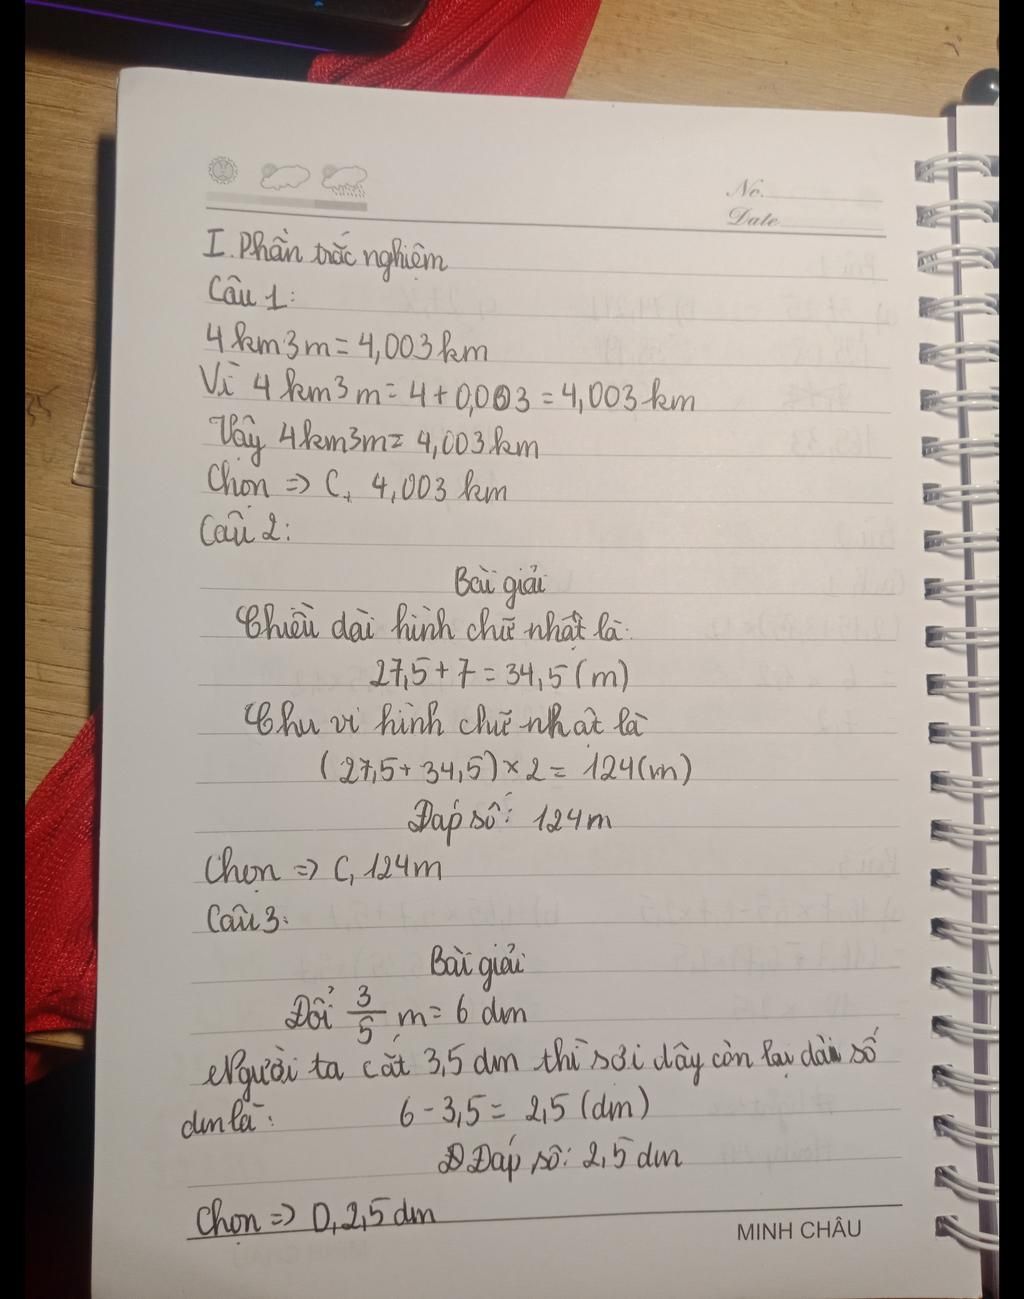 No.
Date
I. Phần trắc nghiệm
Câu 1:
4km3m = 4,003km
Vì 4km3m = 4 + 0,003 = 4,003 km
Vậy 4km3m = 4,003km
Chọn => C, 4,003 km
Câu 2:
Bài giải
Chiều dài hình chữ nhật là:
27,5 + 7 = 34,5 (m)
Chu vi hình chữ nhật là
(27,5 + 34,5) × 2 = 124(m)
Đáp số: 124m
Chọn => C, 124m
Câu 3:
Bài giải
Đổi 3/5 m = 6 dm
Người ta cắt 3,5 dm thì sợi dây còn lại dài số
dm là: 6 - 3,5 = 2,5 (dm)
Đáp số: 2,5 dm
Chọn => D, 2,5 dm
MINH CHÂU